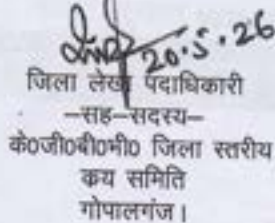 20.5.26
जिला लेखा पदाधिकारी
–सह–सदस्य–
के०जी०बी०भी० जिला स्तरीय
कय समिति
गोपालगंज।